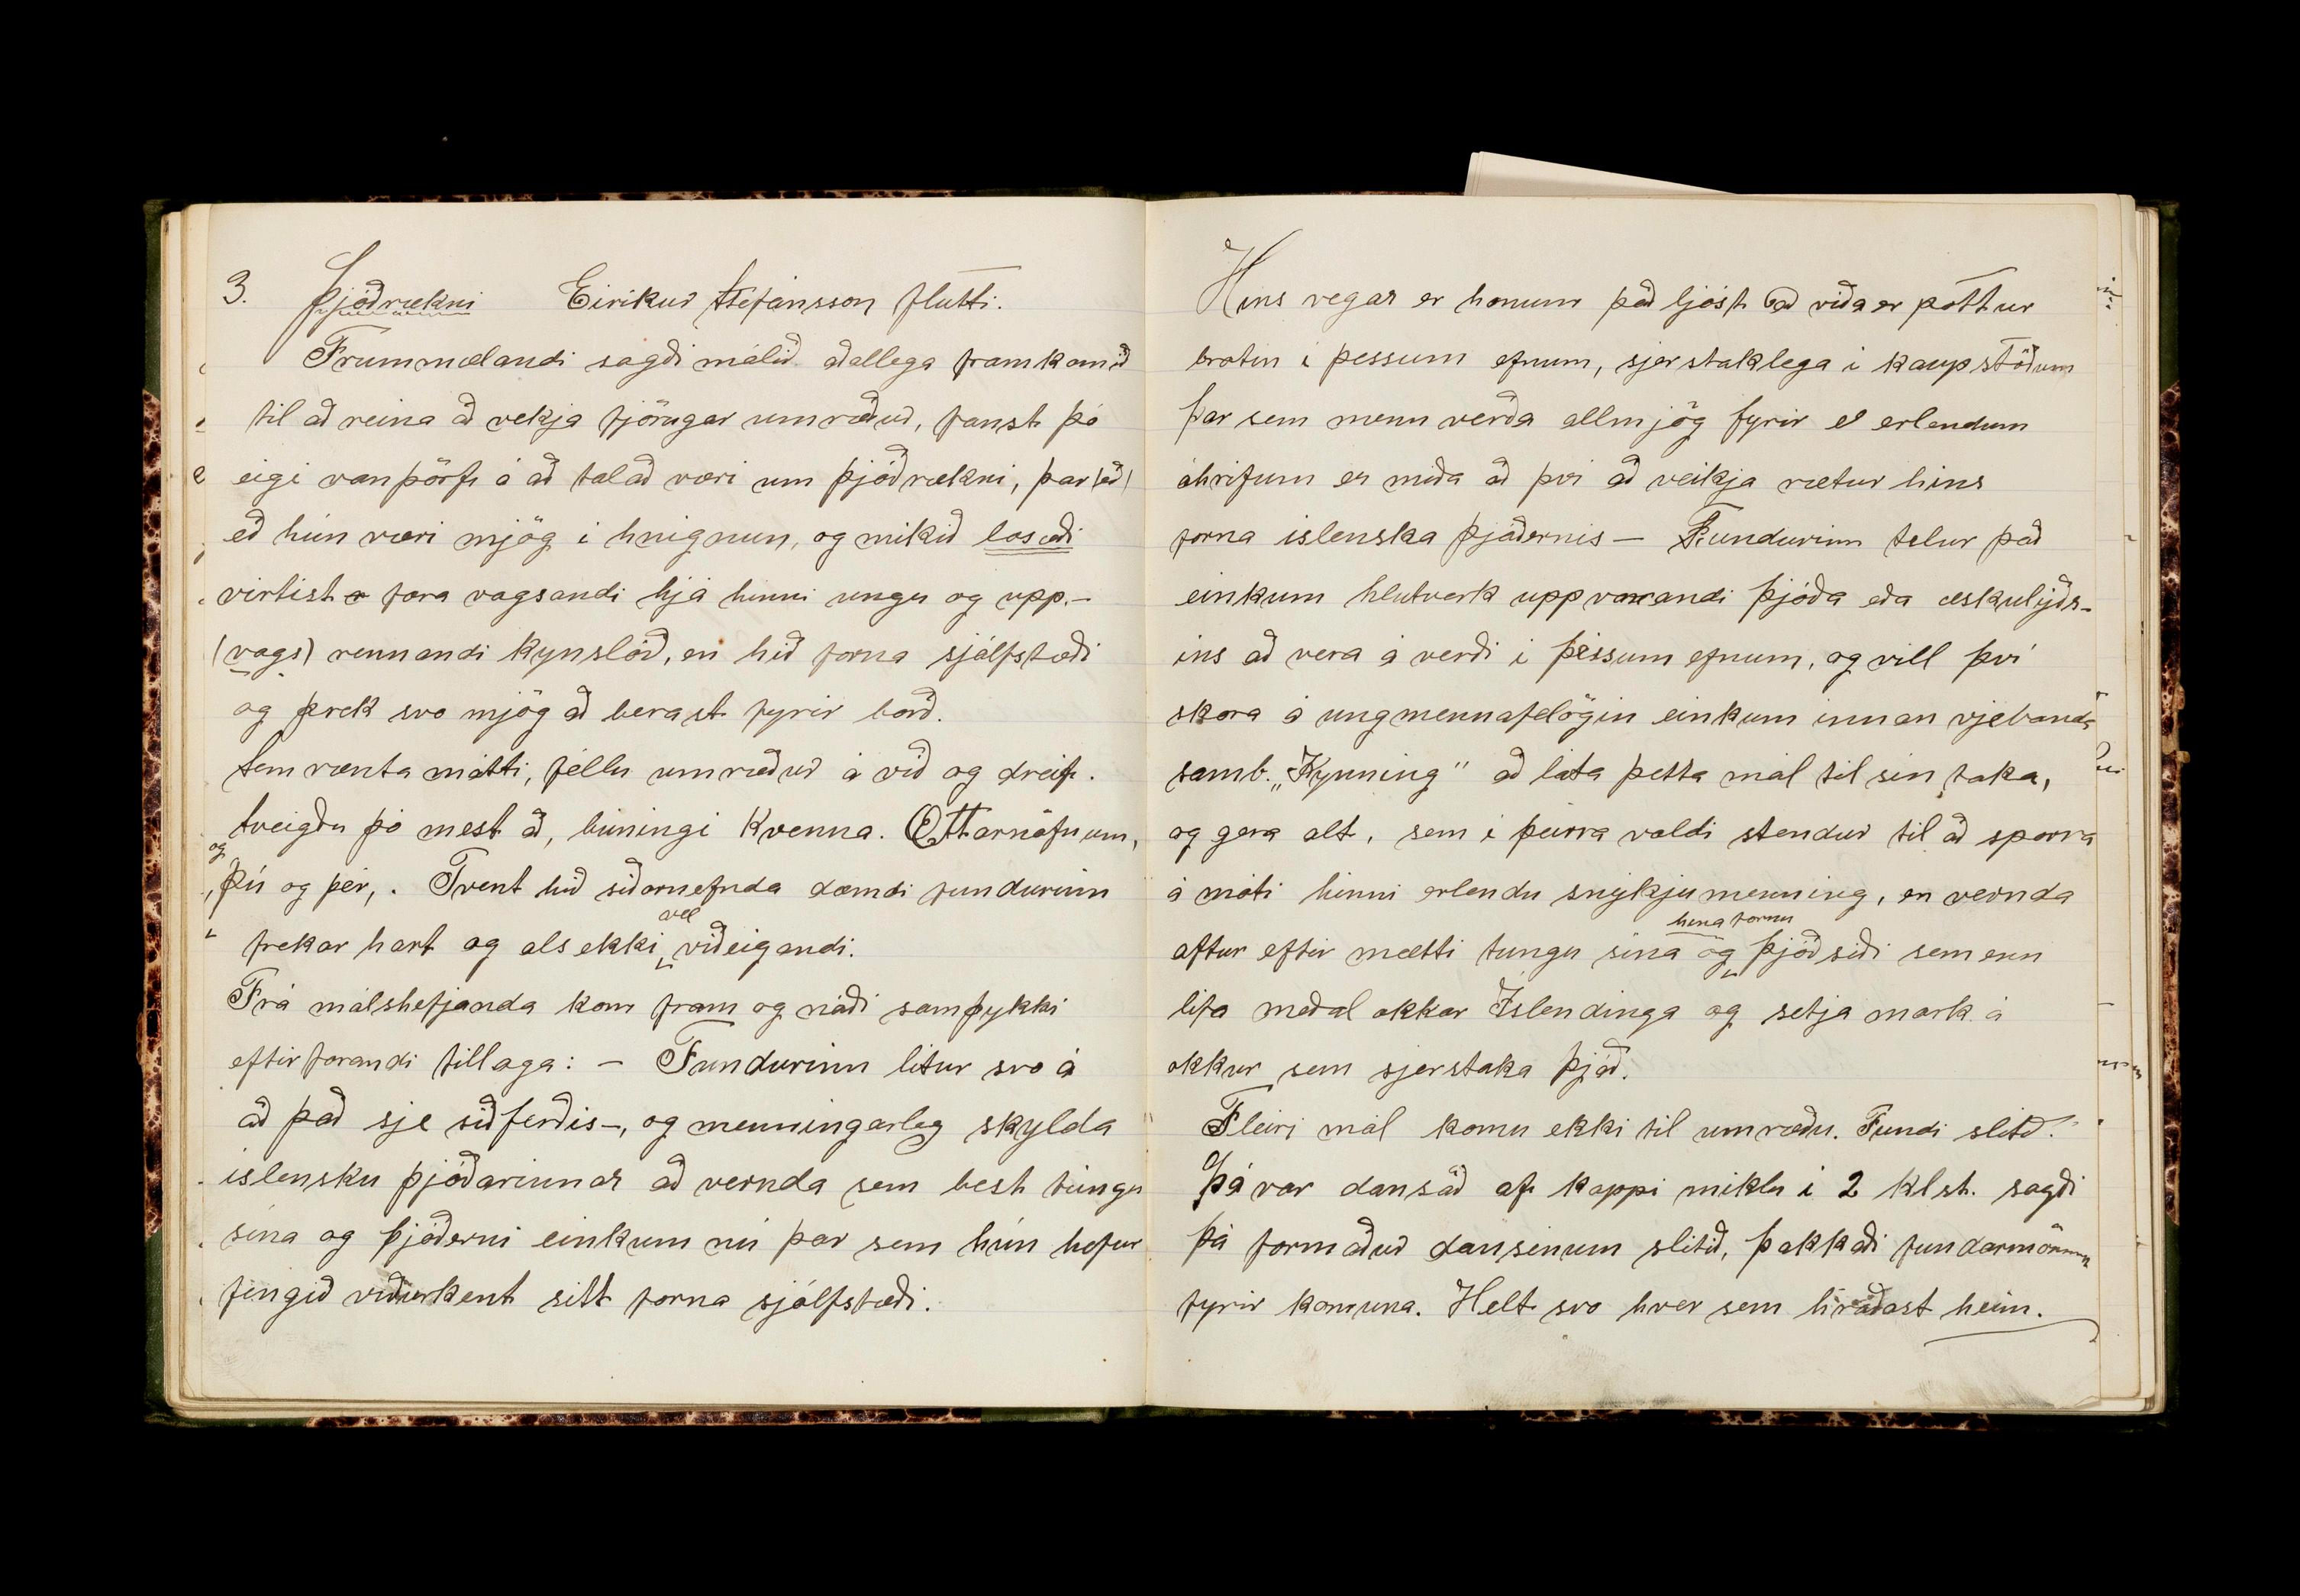 3. Þjóðrækni Eiríkur Stefánsson flutti.
Frummælandi sagði málið aðallega framkomið
til að reina að vekja fjörugar umræður, fanst þó
eigi vanþörf á að talað væri um þjóðrækni, þar (að)
að hún væri mjög í hnignun, og mikið losæði
virtist fara vagsandi hjá hinni ungu og upp.-
(vags) rennandi kynslóð, en hið forna sjálfstæði
og þrek svo mjög að berast fyrir borð.
Sem vænta mátti, féllu umræður á við og dreif.
Sveigðu þó mest að, búningi kvenna. Ættarnöfnum,
og „Þú og þér„. Tvent hið síðarnefnda dæmdi fundurinn
frekar hart og als ekki vel viðeigandi.
Frá málshefjanda kom fram og náði samþykki
eftirfarandi tillaga: - Fundurinn lítur svo á
að það sje siðferðis-, og menningarleg skylda
íslensku þjóðarinnar að vernda sem best tungu
sína og þjóðerni einkum nú þar sem hún hefur
fengið viðurkent sitt forna sjálfstæði.
Hins vegar er honum það ljóst að víða er pottur
brotin í þessum efnum, sjerstaklega í kaupstöðum
þar sem menn verða allmjög fyrir erlendum
áhrifum er miða að því að veikja rætur hins
forna íslenska þjóðernis - Fundurinn telur það
einkum hlutverk uppvaxandi þjóða eða æskulýðs-
ins að vera á verði í þessum efnum, og vill því
skora á ungmennafelögin einkum innan vjebanda
samb. „Kynning" að láta þetta mál til sín taka,
og gera alt, sem í þeirra valdi stendur til að sporna
á móti hinni erlendu snýkjumenning, en vernda
aftur eftir mætti tungu sína og hina fornu þjóðsiði sem enn
lifa meðal okkar Íslendinga og setja mark á
okkur sem sjerstaka þjóð.
Fleiri mál komu ekki til umræðu. Fundi slitið.
Þá var dansað af kappi miklu í 2 klst. sagði
þá formaður dansinum slitið, þakkaði fundarmönnum
fyrir komuna. Helt svo hver sem hraðast heim.